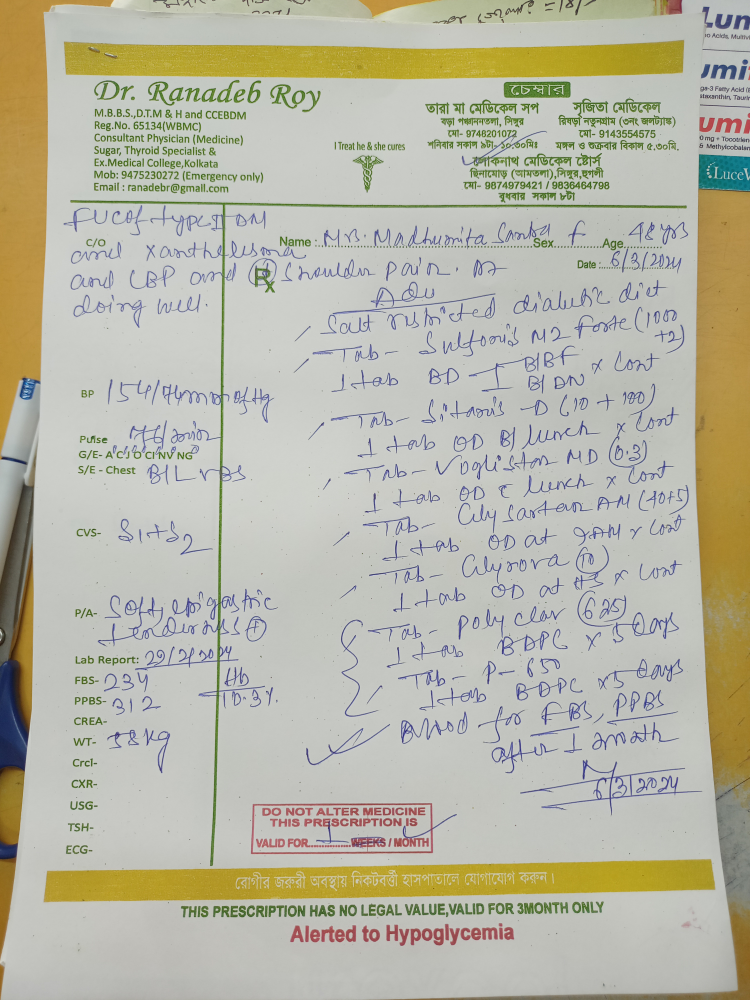 Dr. Ranadeb Roy
M.B.B.S.,D.T.M & H and CCEBDM
Reg.No. 65134(WBMC)
Consultant Physician (Medicine)
Sugar, Thyroid Specialist &
Ex.Medical College,Kolkata
Mob: 9475230272 (Emergency only)
Email : ranadebr@gmall.com
I Treat he & she cures
চেম্বার
তারা মা মেডিকেল সপ
বড়া পঞ্চাননতলা, সিঙ্গুর
মো- 9748201072
শনিবার সকাল ৯টা- ১০.৩০মিঃ
সুজিতা মেডিকেল
রিষড়া নতুনগ্রাম (৩নং জলট্যাঙ্ক)
মো- 9143554575
মঙ্গল ও শুক্রবার বিকাল ৫.৩০মি.
লোকনাথ মেডিকেল ষ্টোর্স
ছিনামোড় (আমতলা),সিঙ্গুর,হুগলী
মো- 9874979421 / 9836464798
বুধবার সকাল ৮টা
FUC of type II DM
C/O and Xanthelesma
and LBP and Shoulder pain.
doing well.
Name : Mrs. Madhumita Santra Sex f Age 48 yrs
Date : 6/3/2024
Rx
Adv
Salt restricted diabetic diet
Tab- Sulforis M2 Forte (1000
+2)
1 tab BD - 1 B/BF
B/DN x Cont
Tab- Sitaris -D (10 + 100)
1 tab OD B/ lunch x Cont
Tab- Vogliston MD (0.3)
1 tab OD c lunch x Cont
Tab- Glysartan AM (40+5)
1 tab OD at 9AM x Cont
Tab- Glyrova (10)
1 tab OD at HS x Cont
Tab- Polyclav (625)
1 tab BDPC x 5 Days
Tab- P-650
1 tab BDPC x 5 Days
Blood for FBS, PPBS
after 1 month
6/3/2024
BP 154/74 mm of Hg
Pulse 76/min
G/E- A C J O CI NV NG
S/E - Chest B/L VBS
CVS- S1+S2
P/A- Soft, epigastric
tenderness (+)
Lab Report: 29/2/2024
FBS- 234
Hb
10.3%
PPBS- 312
CREA-
WT- 58 kg
Crcl-
CXR-
USG-
TSH-
ECG-
DO NOT ALTER MEDICINE
THIS PRESCRIPTION IS
VALID FOR 1 WEEKS / MONTH
রোগীর জরুরী অবস্থায় নিকটবর্ত্তী হাসপাতালে যোগাযোগ করুন।
THIS PRESCRIPTION HAS NO LEGAL VALUE,VALID FOR 3MONTH ONLY
Alerted to Hypoglycemia